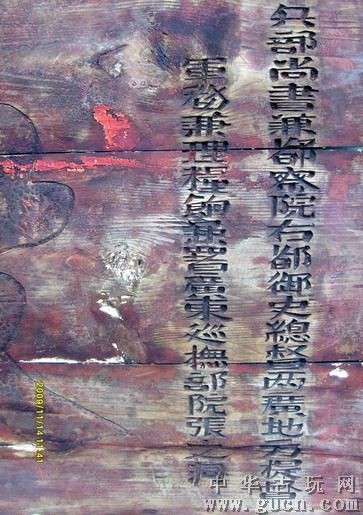 兵部尚書兼都察院右都御史總督两廣地方提督
軍務兼理糧餉兼署廣東巡撫部院張之洞
中华古玩网
www.gucn.com